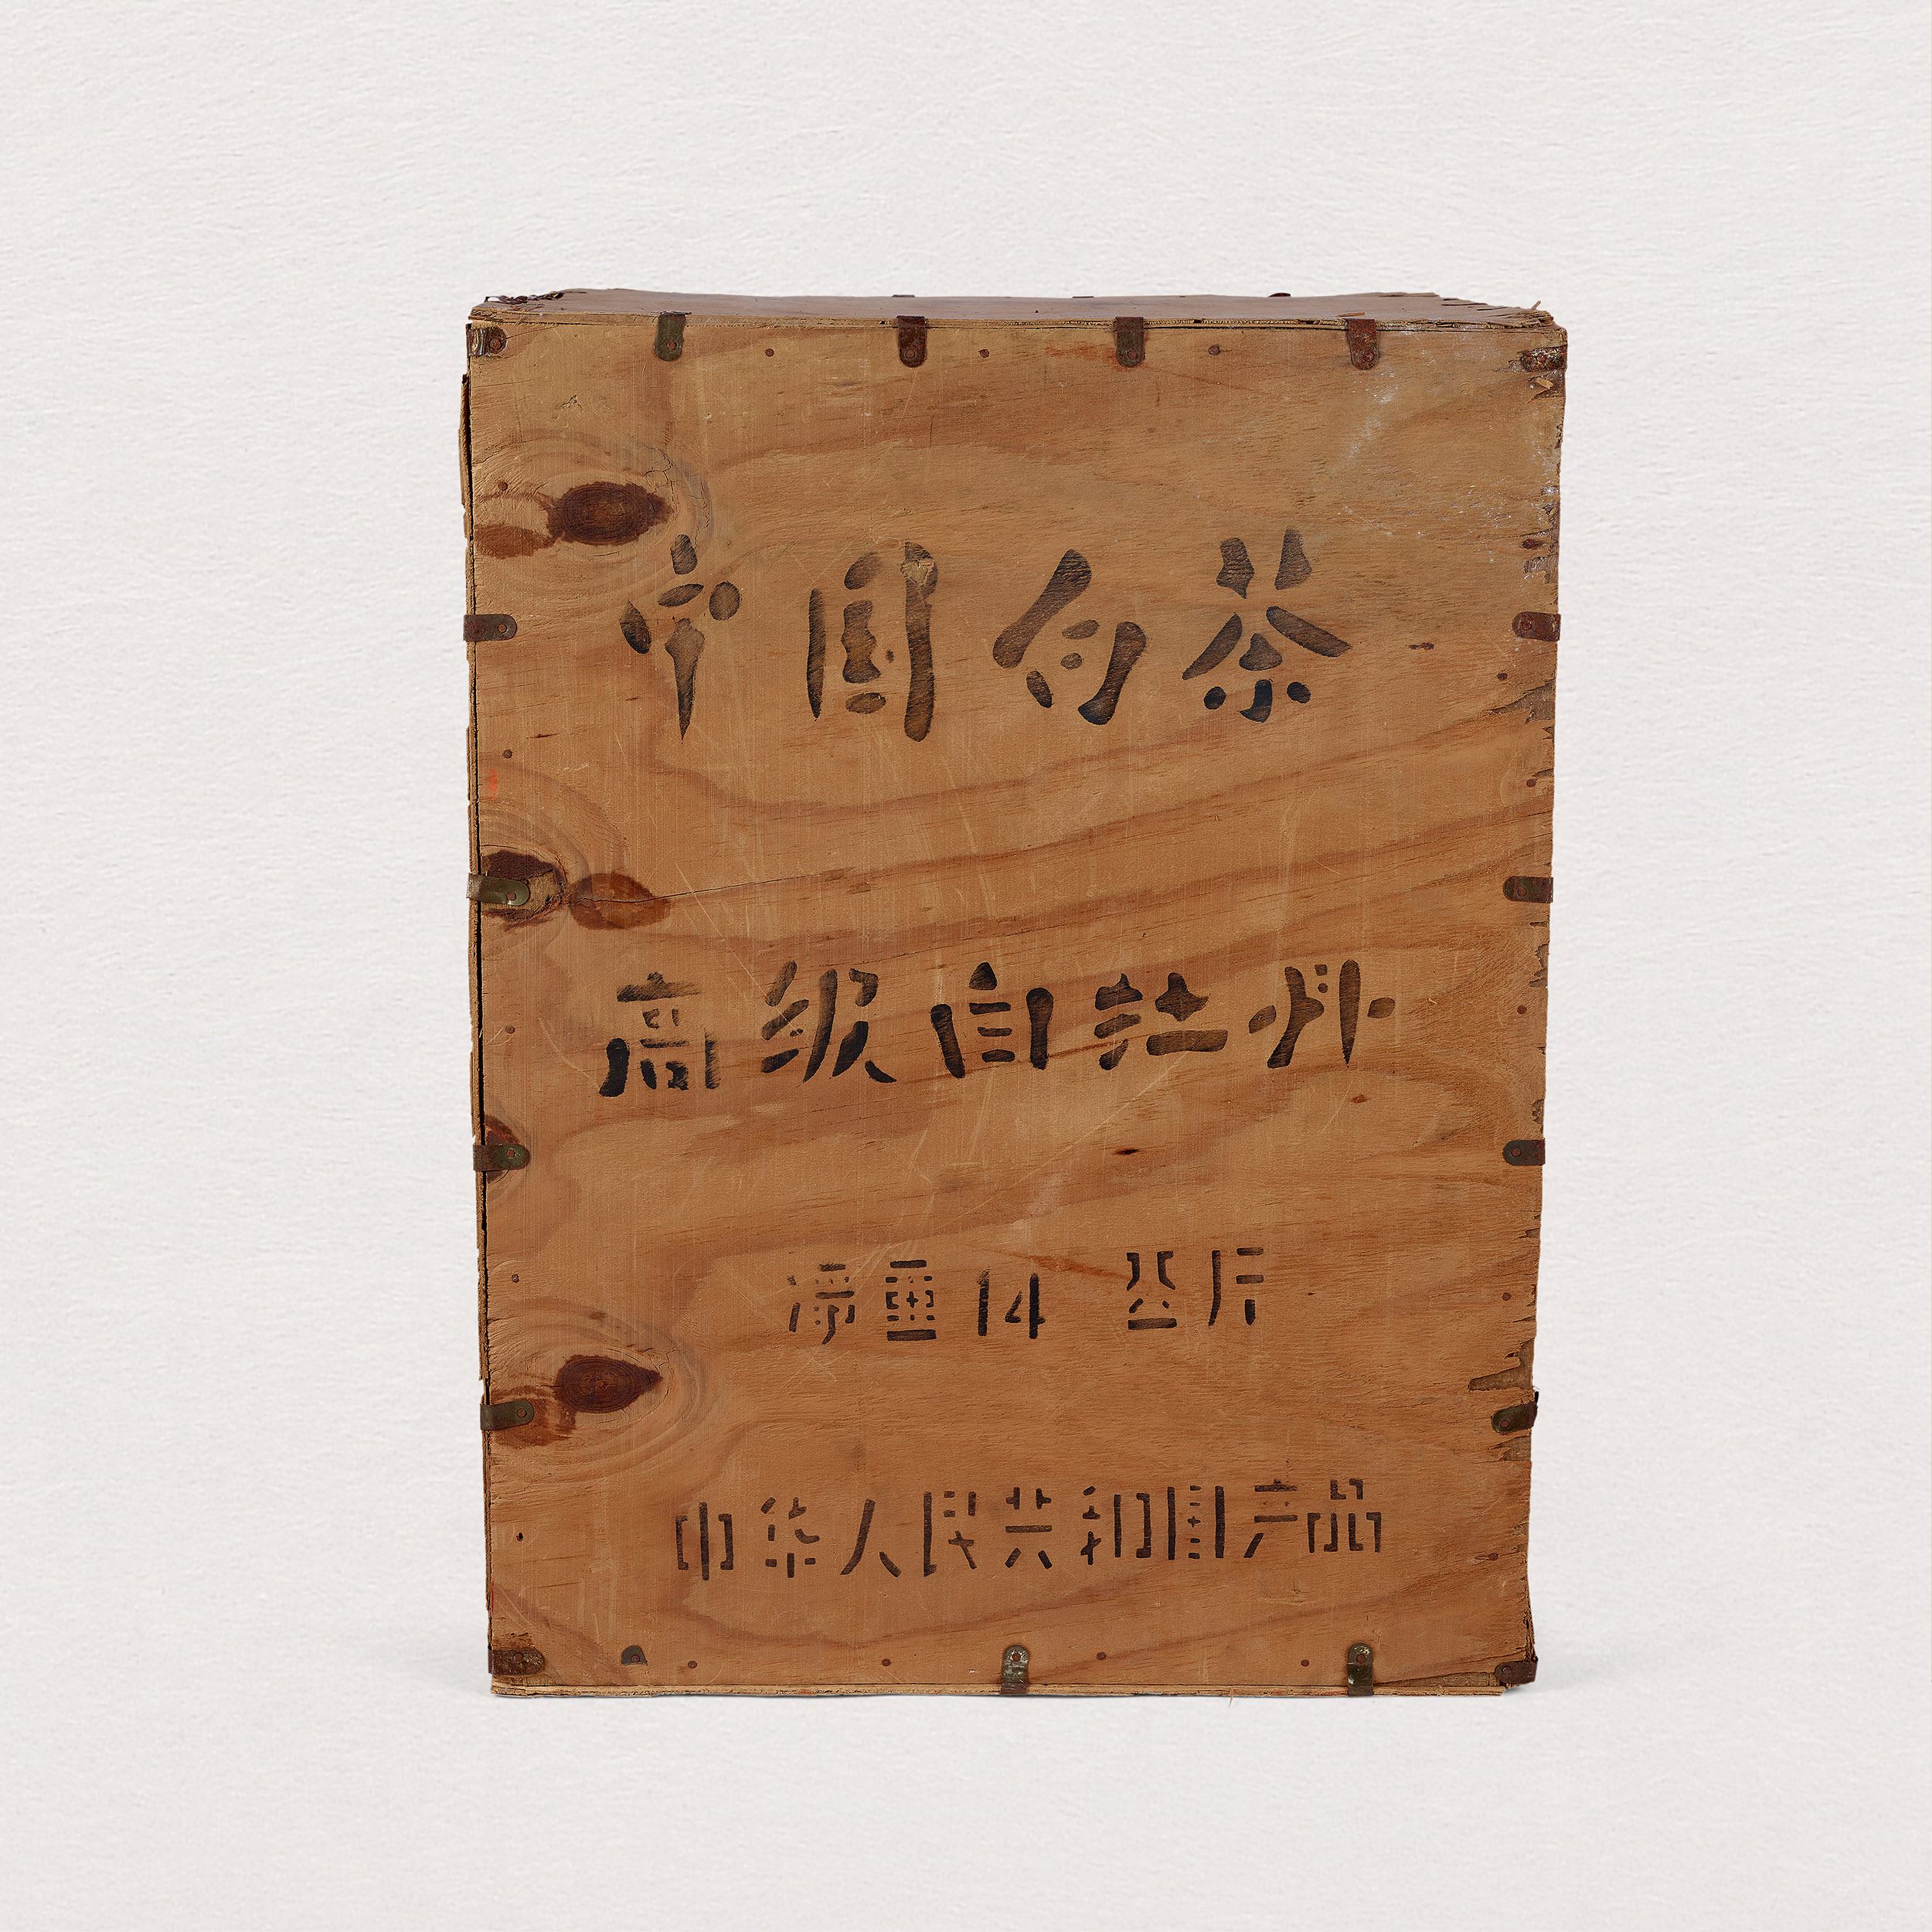 中国白茶
高级白牡丹
净重14 公斤
中华人民共和国产品